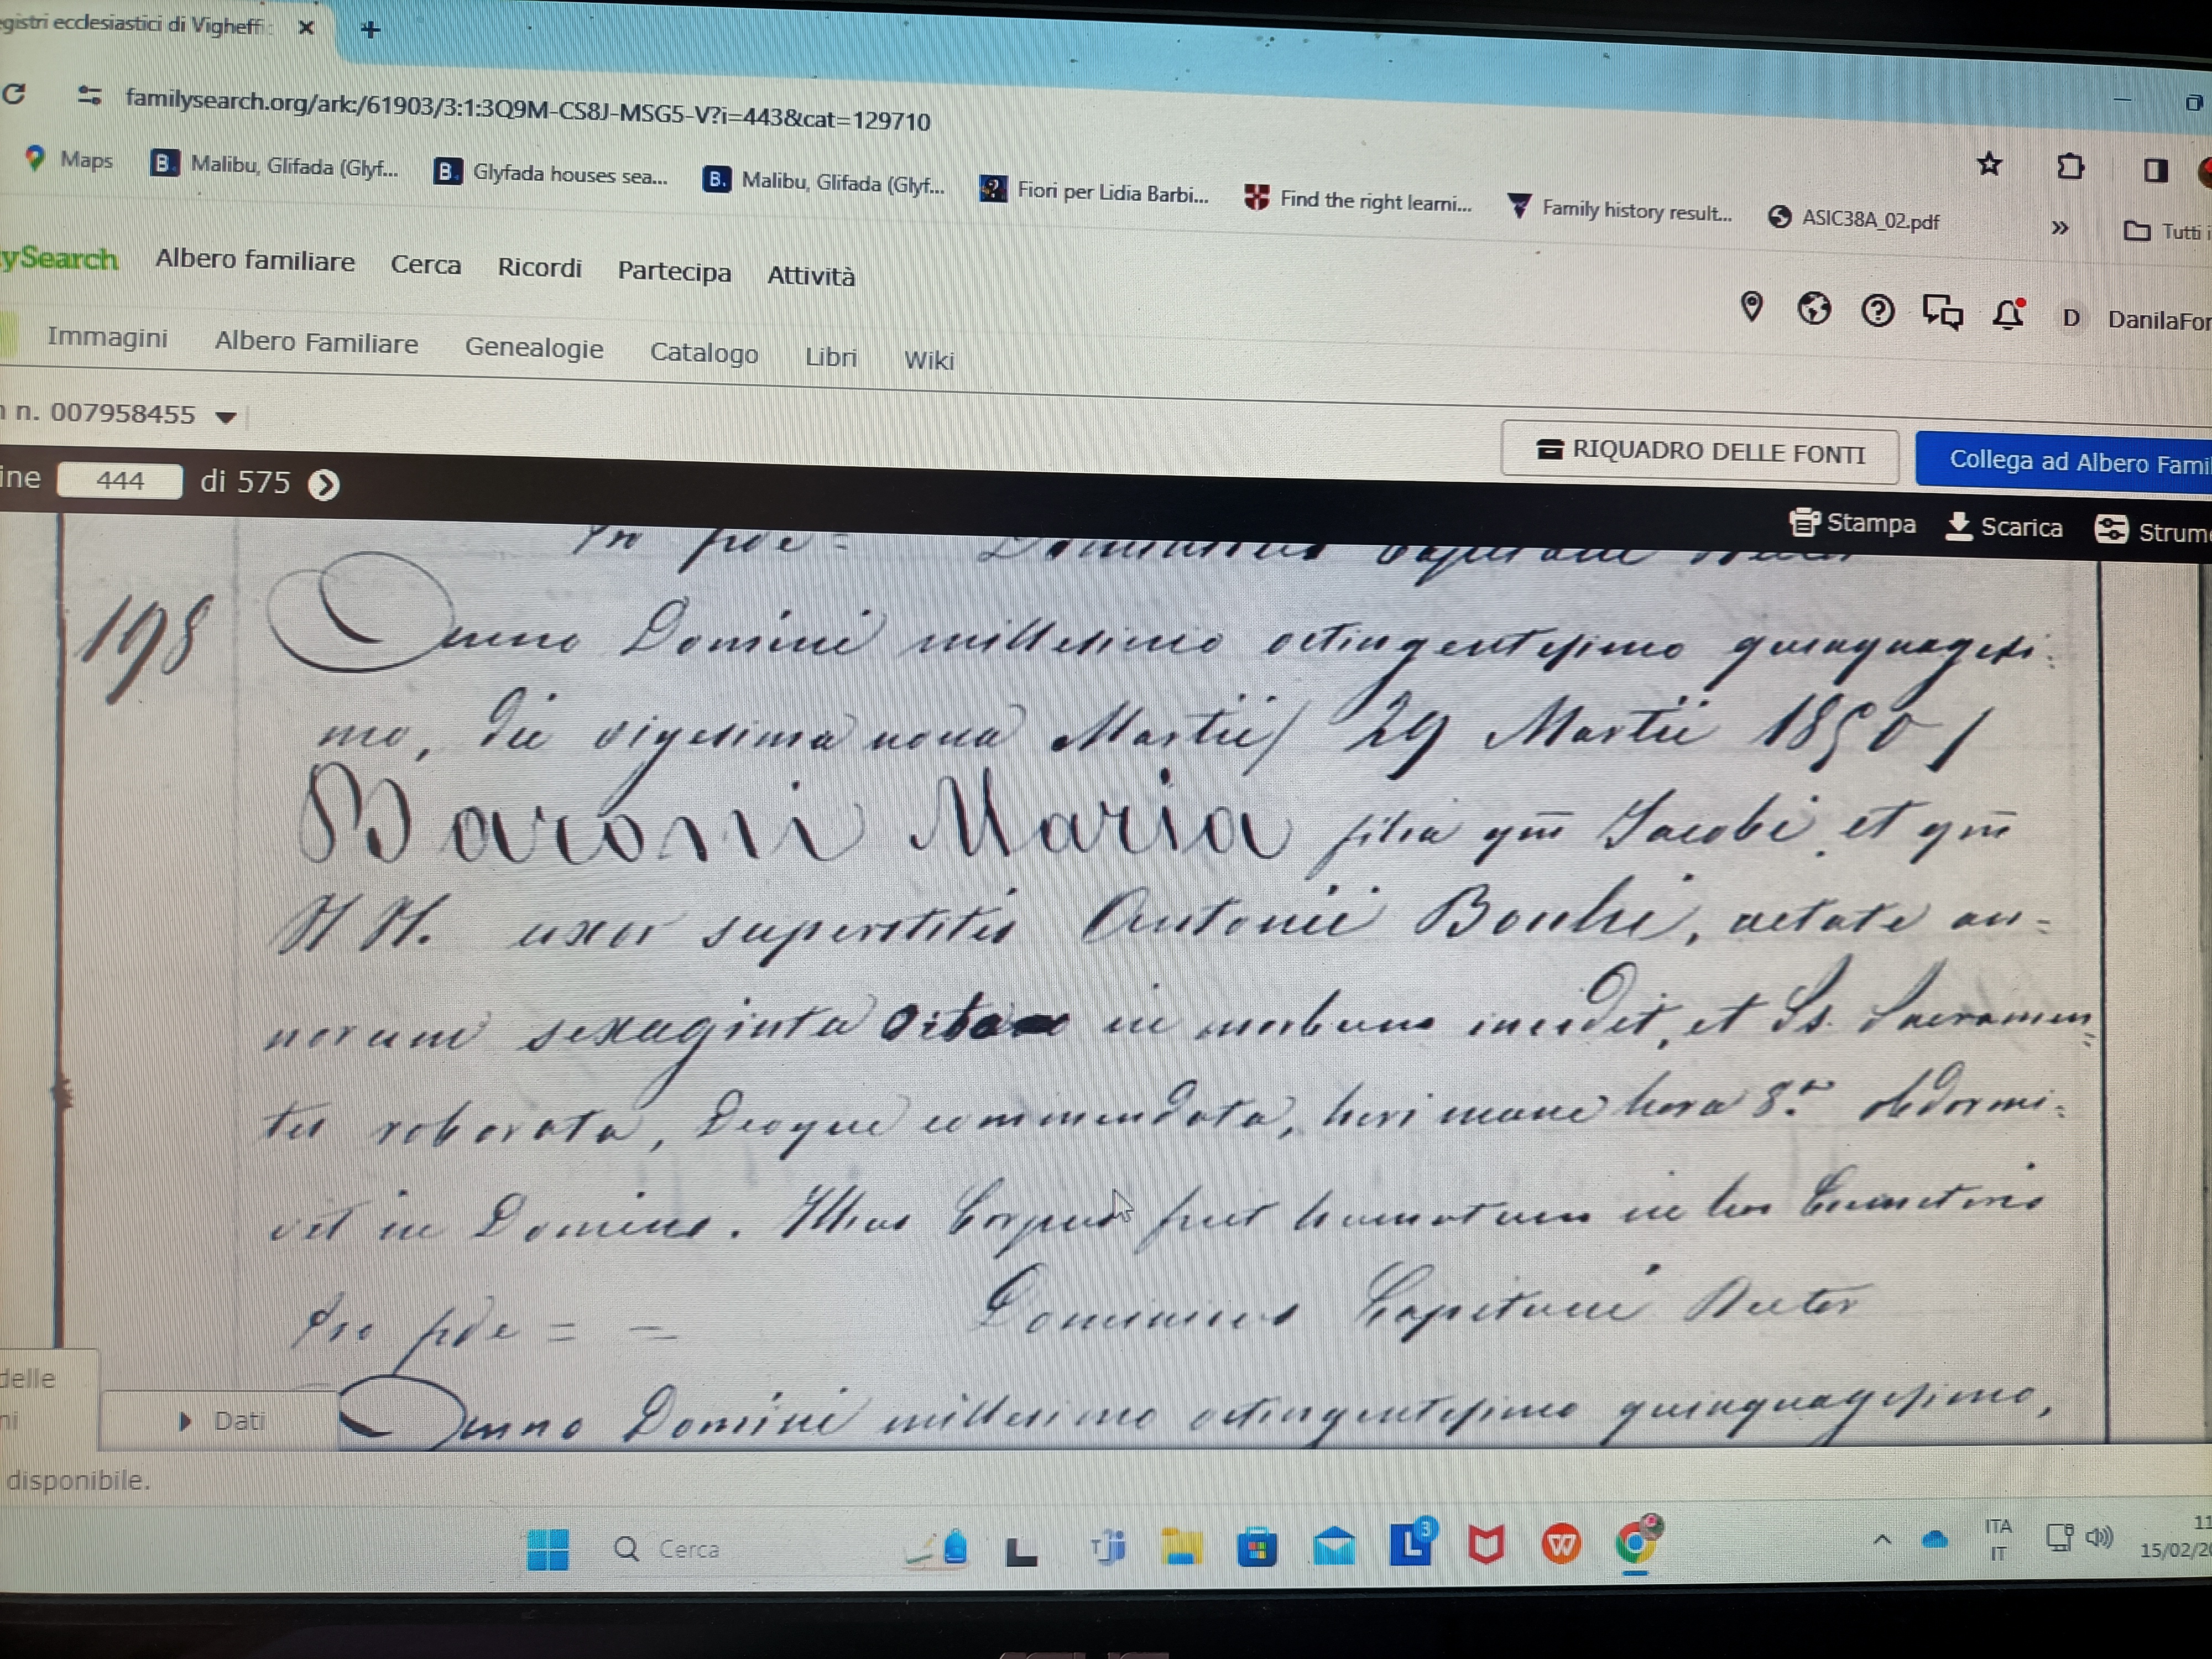 egistri ecclesiastici di Vigheffi
familysearch.org/ark:/61903/3:1:3Q9M-CS8J-MSG5-V?i=443&cat=129710
Maps B. Malibu, Glifada (Glyf... B. Glyfada houses sea... B. Malibu, Glifada (Glyf... Fiori per Lidia Barbi... Find the right learni... Family history result... ASIC38A_02.pdf » Tutti i
ySearch Albero familiare Cerca Ricordi Partecipa Attività
D DanilaFor
Immagini Albero Familiare Genealogie Catalogo Libri Wiki
n. 007958455
RIQUADRO DELLE FONTI Collega ad Albero Fami
ine 444 di 575
Stampa Scarica Strume
Pro pde = Dominicus Capitani Rector
198 Anno Domini millesimo octingentesimo quinquagesi:
mo, die vigesima nona Martii / 29 Martii 1850 /
Baroni Maria filia qm̄ Jacobi et qm̄
N N. uxor superstitis Antonii, aetate an=
norum sexaginta octo in morbum incidit, et Ss. Sacramen=
tis roborata, Deoque commendata, heri mane hora 8.ª obdormi:
vit in Domino. Illius Corpus fuit humatum in hoc Coemeterio
Pro pde = = Dominicus Capitani Rector
Anno Domini millesimo octingentesimo quinquagesimo,
delle
ni
Dati
disponibile.
Cerca
3
ITA
IT
11
15/02/20